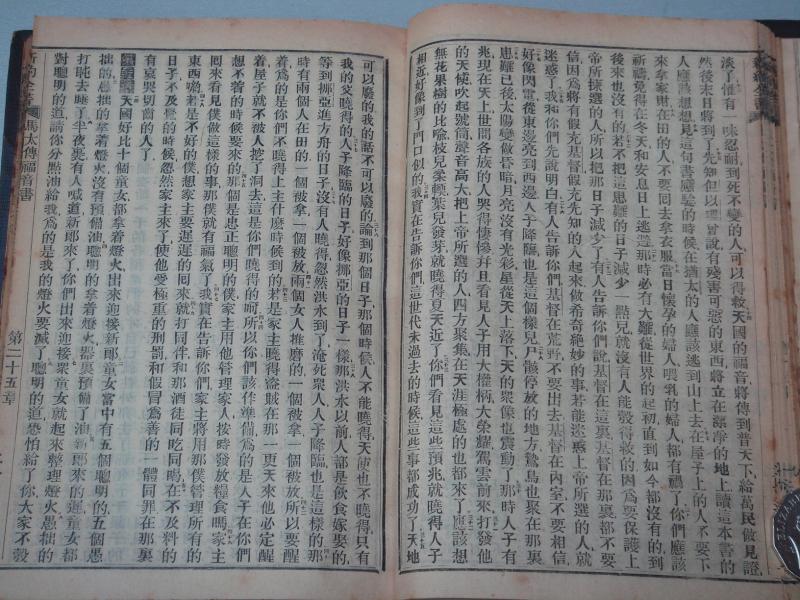 淡了惟有一味忍耐到死不變的人可以得救天國的福音將傳到普天下給萬民做見證
然後末日將到了先知但以理曾說有殘害可惡的東西將立在潔淨的地上讀這本書的
人應該想想見這句書應驗的時候在猶太的人應該逃到山上去在屋子上的人不要下
來拿家財在田的人不要回去拿衣服當日懷孕的婦人喂乳的婦人都有禍了你們應該
祈禱免得在冬天和安息日上逃避那時必有大難從世界的起初直到如今都沒有的到
後來也沒有的若不把這患難的日子減少一點兒就沒有人能彀得救的因為要保護上
帝所揀選的人所以把那日子減少了有人告訴你們說基督在這裏基督在那裏都不要
信因為將有假充基督假充先知的人起來做希奇絕妙的事若能迷惑上帝所選的人就
迷惑了我對你們先說明白有人告訴你們基督在荒野不要出去基督在內室不要相信
好像閃電從東邊亮到西邊人子降臨也是這個樣兒尸骸停放的地方鷙鳥也聚在那裏
患難已後太陽變做昏暗月亮沒有光彩星從天上落下天的衆像也震動了那時人子有
兆現在天上世間各族的人哭得悽慘并且看見人子用大權柄大榮耀駕雲前來打發他
的天使吹起號筒聲音高大把上帝所選的人四方聚集在天涯極處的也都來了應該想
無花果樹的比喻枝兒柔輭葉兒發芽就曉得夏天近了你們看見這些預兆就曉得人子
相近好像到了門口似的我實在告訴你們這世代未過去的時候這些事都成功了天地
可以廢的我的話不可以廢的論到那個日子那個時候人不能曉得天使也不曉得只有
我的父曉得的人子降臨的日子好像挪亞的日子一樣那洪水以前人都是飲食嫁娶的
等到挪亞進方舟的日子沒有人曉得忽然洪水到了淹死衆人人子降臨也是這樣的那
時有兩個人在田的一個被拿一個被放兩個女人推磨的一個被拿一個被放所以要醒
着為的是你們不曉得上主什麽時候到的若是家主曉得盜賊在那一更天來他必定醒
着屋子就不被人挖了洞去這是你們曉得的啊所以你們該作準備為的是人子在你們
想不着的時候要來的那個是忠正聰明的僕家主用他管理家人按時發放糧食嗎家主
回來看見僕做這樣的事那僕就有福氣了我實在告訴你們家主將用那僕管理所有的
東西喲若是不好的僕想家主要遲遲的回來就打同伴和那酒徒同吃同喝在不及料的
日子不及覺的時候忽然家主來了使他受極重的刑罰和假冒為善的一體同罪在那裏
有哀哭切齒的人了
天國好比十個童女都拿着燈火出來迎接新郎童女當中有五個聰明的五個愚
拙的愚拙的拿着燈火沒有預備油聰明的拿着燈火器裏預備了油新郎來的遲童女都
打盹去睡了半夜裏有人喊道新郎來了你們出來迎接衆童女就起來整理燈火愚拙的
對聰明的道請你分點油給我為的是我的燈火要滅了聰明的道恐怕給了你大家不彀
新約全書
馬太傳福音書
第二十五章